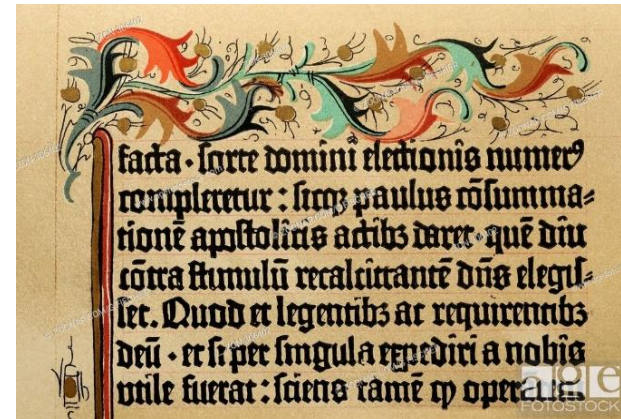 facta · sorte domini electionis numerꝰ
compleretur : sicqꝫ paulus cōsumma⸗
tionē apostolicis actibꝫ daret · quē diu
cōtra stimulū recalcitrantē dn̄s elegis⸗
set. Quod et legentibꝫ ac requirentibꝫ
deū · et si per singula expediri a nobis
utile fuerat : sciens tamē ꝙ operātem
age
FOTOSTOCK